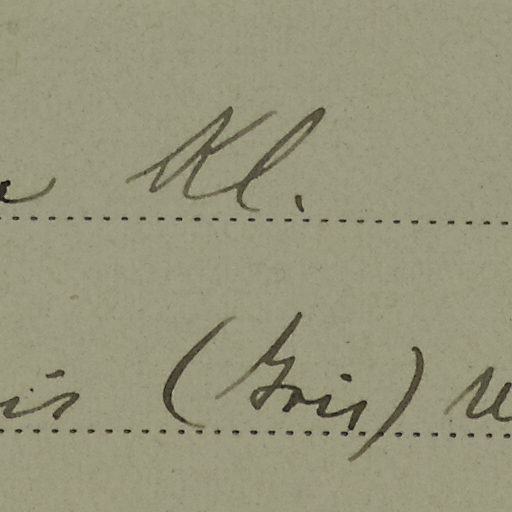 Kl.
is (Gris)